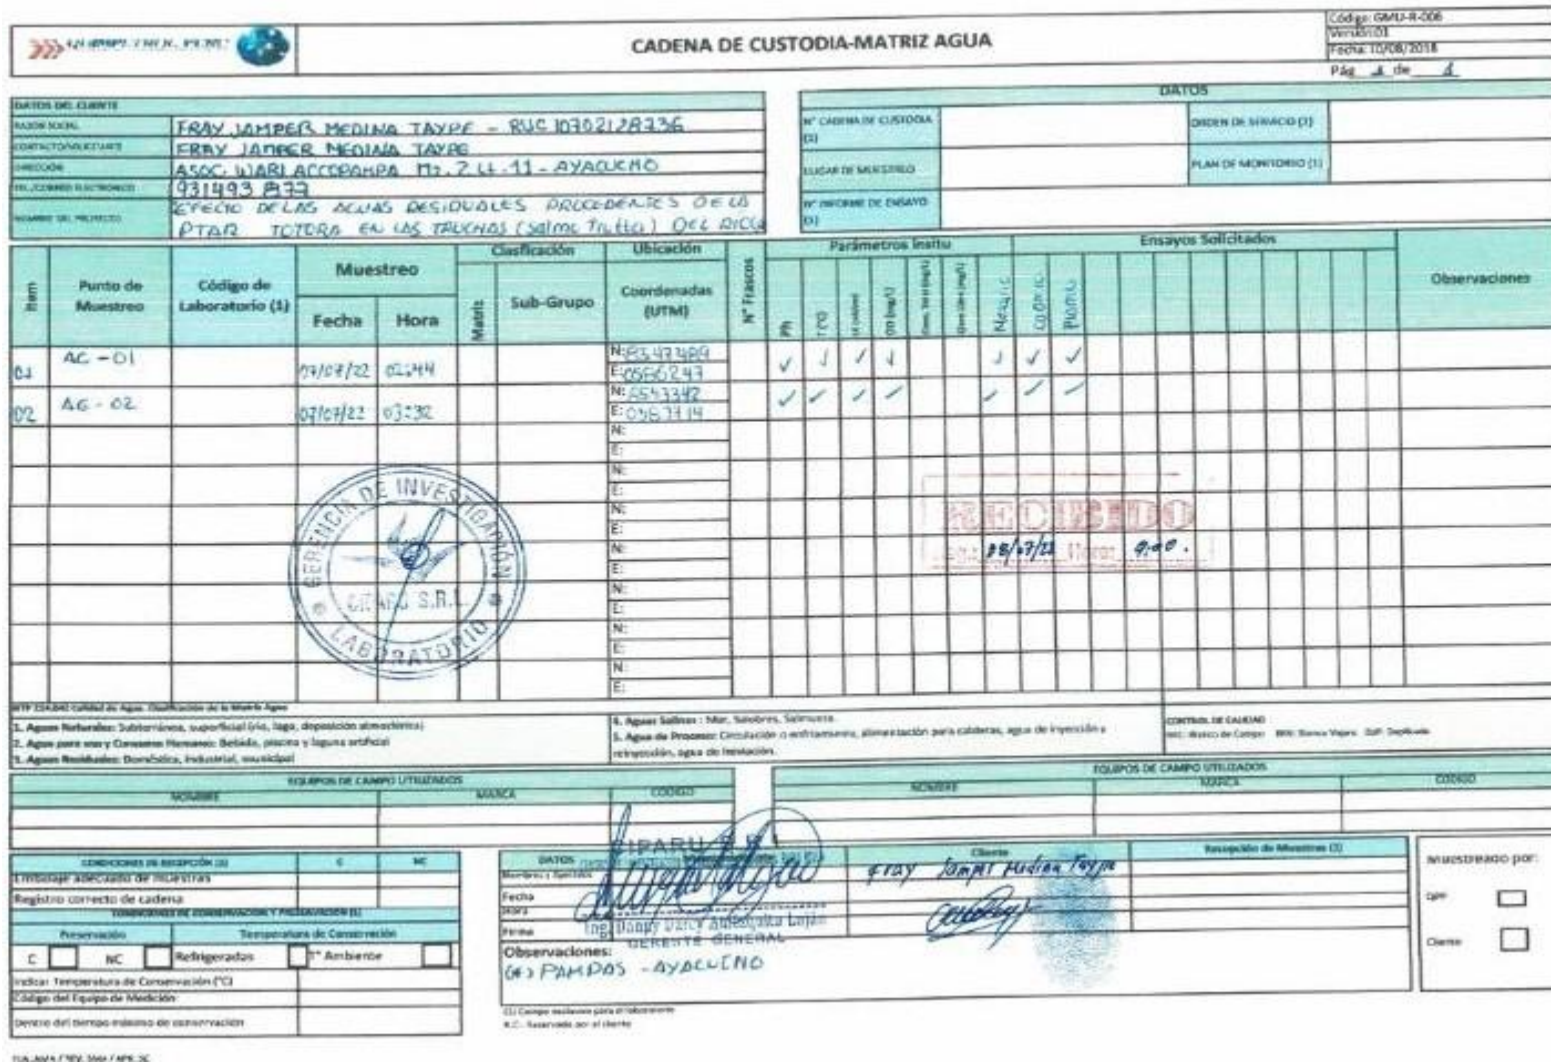 CADENA DE CUSTODIA-MATRIZ AGUA
Código: GMU-R-006
Versión:01
Fecha: 10/08/2018
Pág 1 de 1
DATOS DEL CLIENTE
RAZON SOCIAL FRAY JAMPER MEDINA TAYPE - RUC 10702128736
CONTACTO/SOLICITANTE FRAY JAMPER MEDINA TAYPE
DIRECCIÓN ASOC. WARI ACCOPAMPA Mz. Z Lt. 11 - AYACUCHO
TEL./CORREO ELECTRONICO 931493877
NOMBRE DEL PROYECTO EFECTO DE LAS AGUAS RESIDUALES PROCEDENTES DE LA
PTAR TOTORA EN LAS TRUCHAS (Salmo Trutta) DEL RIO
DATOS
N° CADENA DE CUSTODIA (1)
ORDEN DE SERVICIO (1)
LUGAR DE MUESTREO
PLAN DE MONITOREO (1)
N° INFORME DE ENSAYO (1)
Item
Punto de Muestreo
Código de Laboratorio (1)
Muestreo
Fecha Hora
Clasificación
Matriz Sub-Grupo
Ubicación
Coordenadas (UTM)
N° Frascos
Parámetros Insitu
Ph T (°C) OD (mg/L)
Ensayos Solicitados
Cadmio Plomo
Observaciones
01 AG - 01 07/07/22 02:44 N: 8547489 ✓ ✓ ✓ ✓ ✓ ✓ ✓
E: 0586247
02 AG - 02 07/07/22 03:32 ✓ ✓ ✓ ✓ ✓ ✓ ✓
N:
E:
N:
E:
N:
E:
N:
E:
N:
E:
N:
E:
N:
E:
GERENCIA DE INVESTIGACIÓN
S.R.L.
LABORATORIO
RECIBIDO
08/07/22 Hora: 9:00.
NTP 214.042 Calidad de Agua. Clasificación de la Matriz Agua
1. Aguas Naturales: Subterránea, superficial (río, lago, deposición atmosférica)
2. Agua para uso y Consumo Humano: Bebida, piscina y laguna artificial
3. Aguas Residuales: Doméstica, industrial, municipal
4. Aguas Salinas : Mar, Salobres, Salmuera.
5. Agua de Proceso: Circulación o enfriamiento, alimentación para calderas, agua de inyección y
reinyección, agua de
CONTROL DE CALIDAD
Blanco de Campo Blanco Viajero Duplicado
EQUIPOS DE CAMPO UTILIZADOS
NOMBRE MARCA CODIGO
EQUIPOS DE CAMPO UTILIZADOS
NOMBRE MARCA CODIGO
CONDICIONES DE RECEPCIÓN (1) C NC
Embalaje adecuado de muestras
Registro correcto de cadena
CONDICIONES DE CONSERVACION Y PRESERVACION (1)
Preservación Temperatura de Conservación
C NC Refrigeradas T° Ambiente
Indicar Temperatura de Conservación (°C)
Código del Equipo de Medición
Dentro del tiempo máximo de conservación
DATOS Cliente Recepción de Muestras (1)
Nombres y Apellidos Fray Jamper Medina Taype
Fecha
Hora
Firma
GERENTE GENERAL
Observaciones:
(*) PAMPAS - AYACUCHO
Muestreado por:
Cliente
(1) Campo exclusivo para el laboratorio